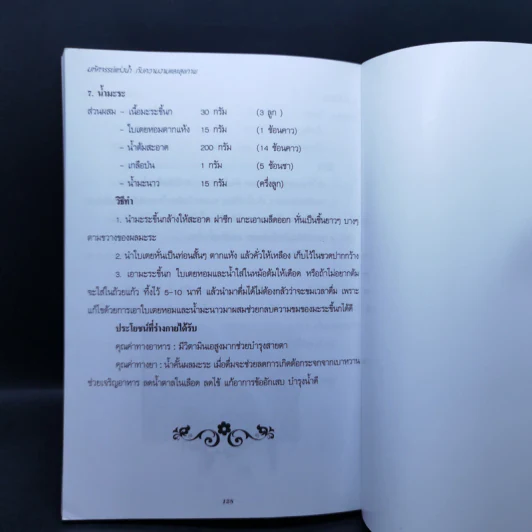 มหัศจรรย์แห่งน้ำ กับความงามและสุขภาพ
7. น้ำมะระ
ส่วนผสม – เนื้อมะระขี้นก 30 กรัม (3 ลูก )
– ใบเตยหอมตากแห้ง 15 กรัม (1 ช้อนคาว)
– น้ำต้มสะอาด 200 กรัม (14 ช้อนคาว)
– เกลือป่น 1 กรัม (5 ช้อนชา)
– น้ำมะนาว 15 กรัม (ครึ่งลูก)
วิธีทำ
1. นำมะระขี้นกล้างให้สะอาด ผ่าซีก แกะเอาเมล็ดออก หั่นเป็นชิ้นยาวๆ บางๆ
ตามขวางของผลมะระ
2. นำใบเตยหั่นเป็นท่อนสั้นๆ ตากแห้ง แล้วคั่วให้เหลือง เก็บไว้ในขวดปากกว้าง
3. เอามะระขี้นก ใบเตยหอมและน้ำใส่ในหม้อต้มให้เดือด หรือถ้าไม่อยากต้ม
จะใส่ในถ้วยแก้ว ทิ้งไว้ 5-10 นาที แล้วนำมาดื่มได้ไม่ต้องกลัวว่าจะขมเวลาดื่ม เพราะ
แก้ไขด้วยการเอาใบเตยหอมและน้ำมะนาวมาผสมช่วยกลบความขมของมะระขี้นกได้ดี
ประโยชน์ที่ร่างกายได้รับ
คุณค่าทางอาหาร : มีวิตามินเอสูงมากช่วยบำรุงสายตา
คุณค่าทางยา : น้ำคั้นผลมะระ เมื่อดื่มจะช่วยลดการเกิดต้อกระจกจากเบาหวาน
ช่วยเจริญอาหาร ลดน้ำตาลในเลือด ลดไข้ แก้อาการข้ออักเสบ บำรุงน้ำดี
128